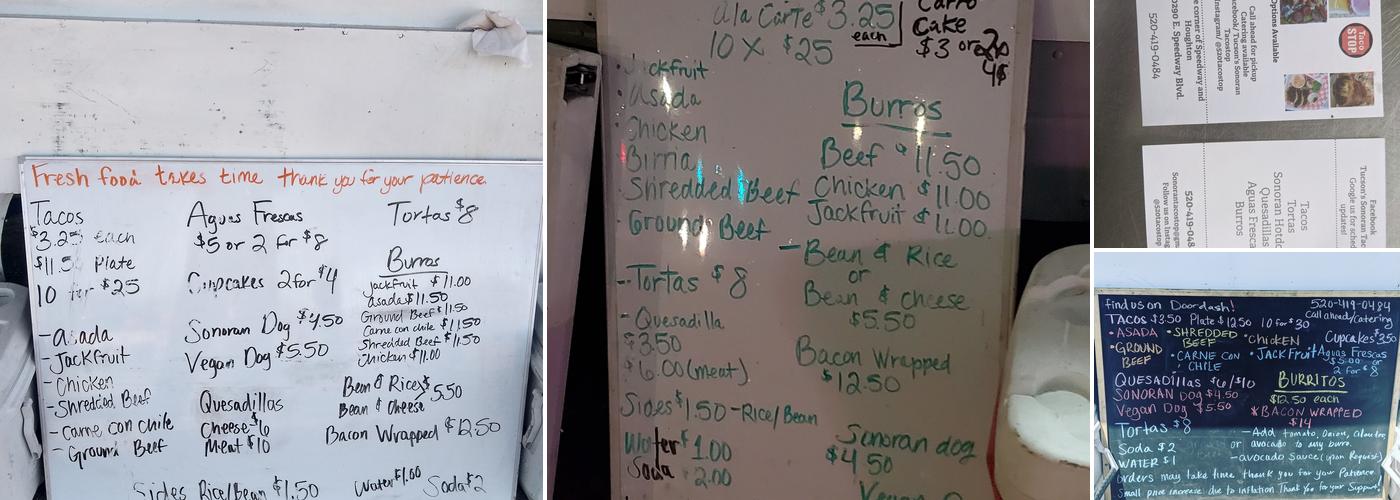 Fresh food takes time thank you for your patience.
Tacos
$3.25 each
$11.5 Plate
10 for $25
- Asada
- Jackfruit
- Chicken
- Shredded Beef
- Carne con chile
- Ground Beef
Aguas Frescas
$5 or 2 for $8
Cupcakes 2 for $4
Sonoran Dog $4.50
Vegan Dog $5.50
Quesadillas
Cheese $6
Meat $10
Tortas $8
Burros
jackfruit $11.00
asada $11.50
Ground Beef $11.50
Carne con chile $11.50
Shredded Beef $11.50
Chicken $11.00
Bean & Rice $5.50
Bean & Cheese
Bacon Wrapped $12.50
Sides Rice/Bean $1.50
Water $1.00
Soda $2
Ala Carte $3.25 each
10 x $25
Cake
$3 or 2x
4$
Jackfruit
Asada
Chicken
Birria
Shredded Beef
Ground Beef
- Tortas $8
- Quesadilla
$3.50
$6.00 (meat)
Sides $1.50 - Rice/Bean
Water $1.00
Soda $2.00
Burros
Beef $11.50
Chicken $11.00
Jackfruit $11.00
- Bean & Rice
or
Bean & cheese
$5.50
Bacon Wrapped
$12.50
Sonoran dog
$4.50
Vegan
Taco
STOP
Options Available
Call ahead for pickup
Catering available
Facebook/ Tucson's Sonoran
Tacostop
Instagram/ @520tacostop
corner of Speedway and
Houghton
E. Speedway Blvd.
520-419-0484
Facebook
Tucson's Sonoran Taco
Google us for
updates!
Tacos
Tortas
Sonoran Hotdo
Quesadillas
Aguas Fresca
Burros
520-419-048
Follow us on Instag
@520tacostop
find us on Doordash!
520-419-0484
Call ahead/catering
TACOS $3.50 Plate $12.50 10 for $30
• ASADA
• GROUND
BEEF
• SHREDDED
BEEF
• CARNE CON
CHILE
• CHICKEN
• JACKFRUIT
Cupcakes $3.50
Aguas Frescas
$5.00 or
2 for $8
QUESADILLAS $6/$10
SONORAN Dog $4.50
Vegan Dog $5.50
Tortas $8
Soda $2
WATER $1
BURRITOS
$12.50 each
*BACON WRAPPED
$14
- Add tomato, Onion, Cilantro,
or avocado to any burro.
- avocado sauce (upon Request)
Orders may take time thank you for your Patience
Small price increase due to inflation Thank You for your Support